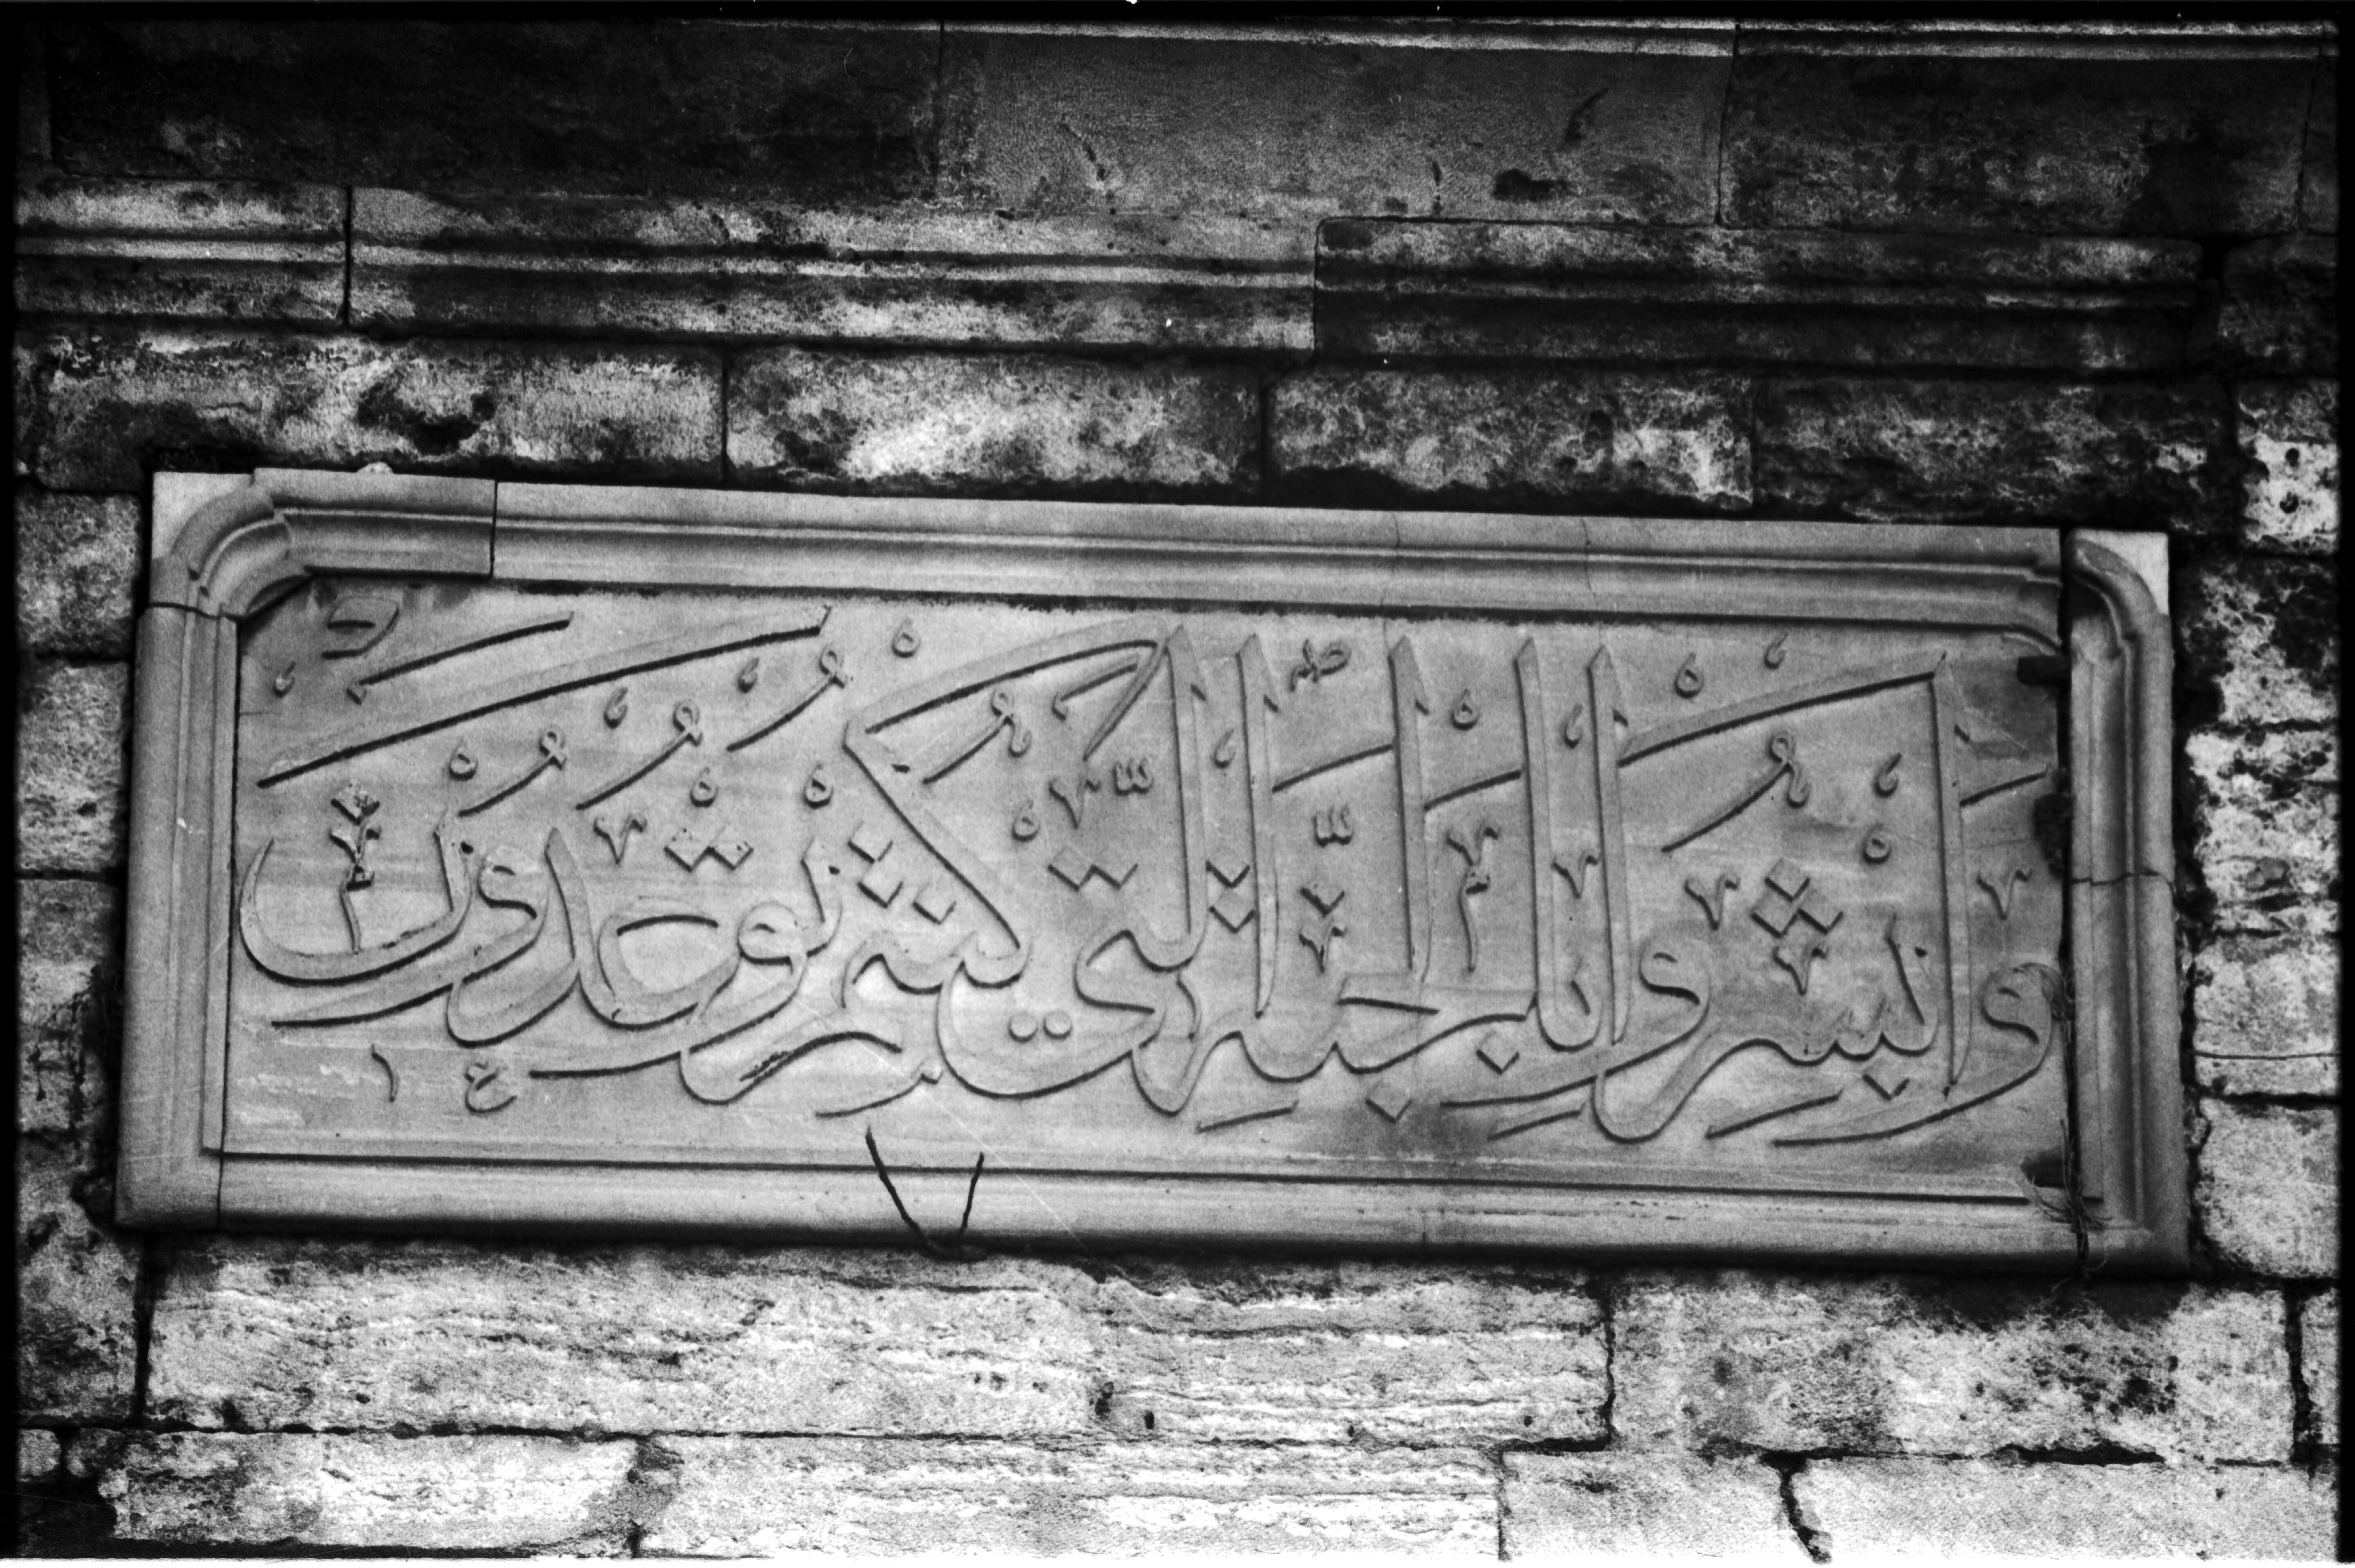 وَاَبْشِرُوا بِالْجَنَّةِ الَّتِي كُنْتُمْ تُوعَدُونَ